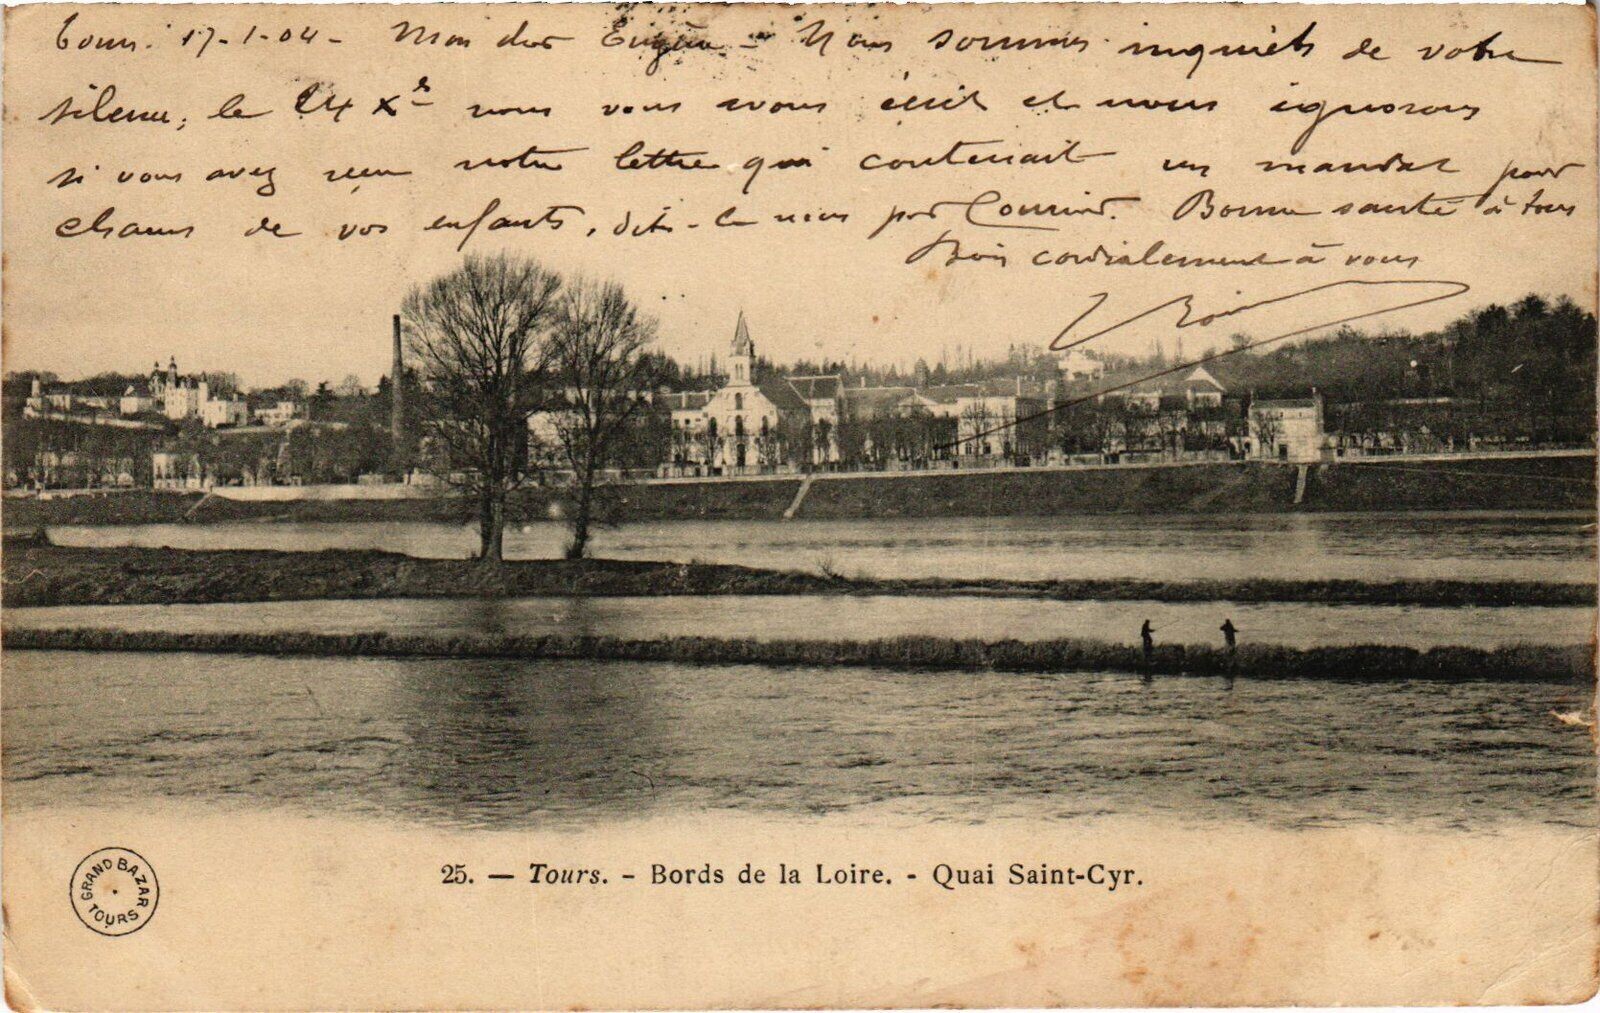 Tours. 17-1-04 - Mon cher Eugène - Nous sommes inquiets de votre
silence, le 24 Xre nous vous avons écrit et nous ignorons
si vous avez reçu notre lettre qui contenait un mandat pour
chacun de vos enfants, dites-le nous par Courrier. Bonne santé à tous
Bien cordialement à vous
25. — Tours. - Bords de la Loire. - Quai Saint-Cyr.
GRAND BAZAR
TOURS